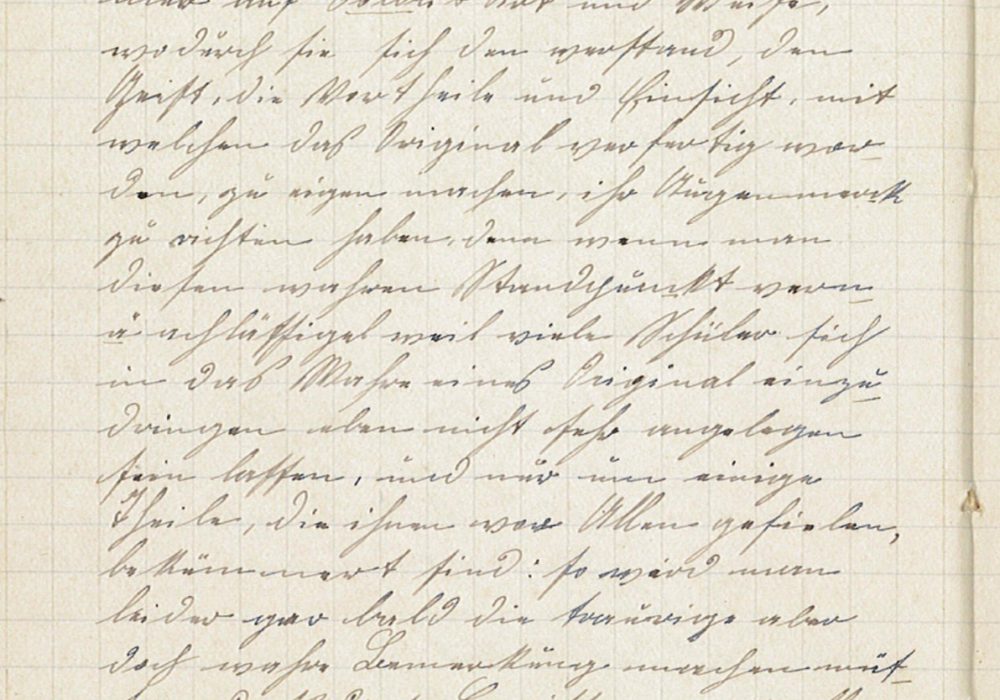 auf Art und Weise,
wodurch sie sich den verstand, den
Geist, die Vortheile und Einsicht, mit
welchen das Original verfertig wor
den, zu eigen machen, ihr Augenmerck
zu richten haben, denn wenn man
diesen wahren Standpunckt vern
ä achläßsigel weil viele Schüler sich
in das Wahre eines Original einzu
dringen eben nicht sehr angelegen
sein lassen, und nur um einige
Theile, die ihnen vor Allen gefielen,
bekümmert sind: so wird man
leider gar bald die traurige aber
doch wahre Bemerkung machen müs